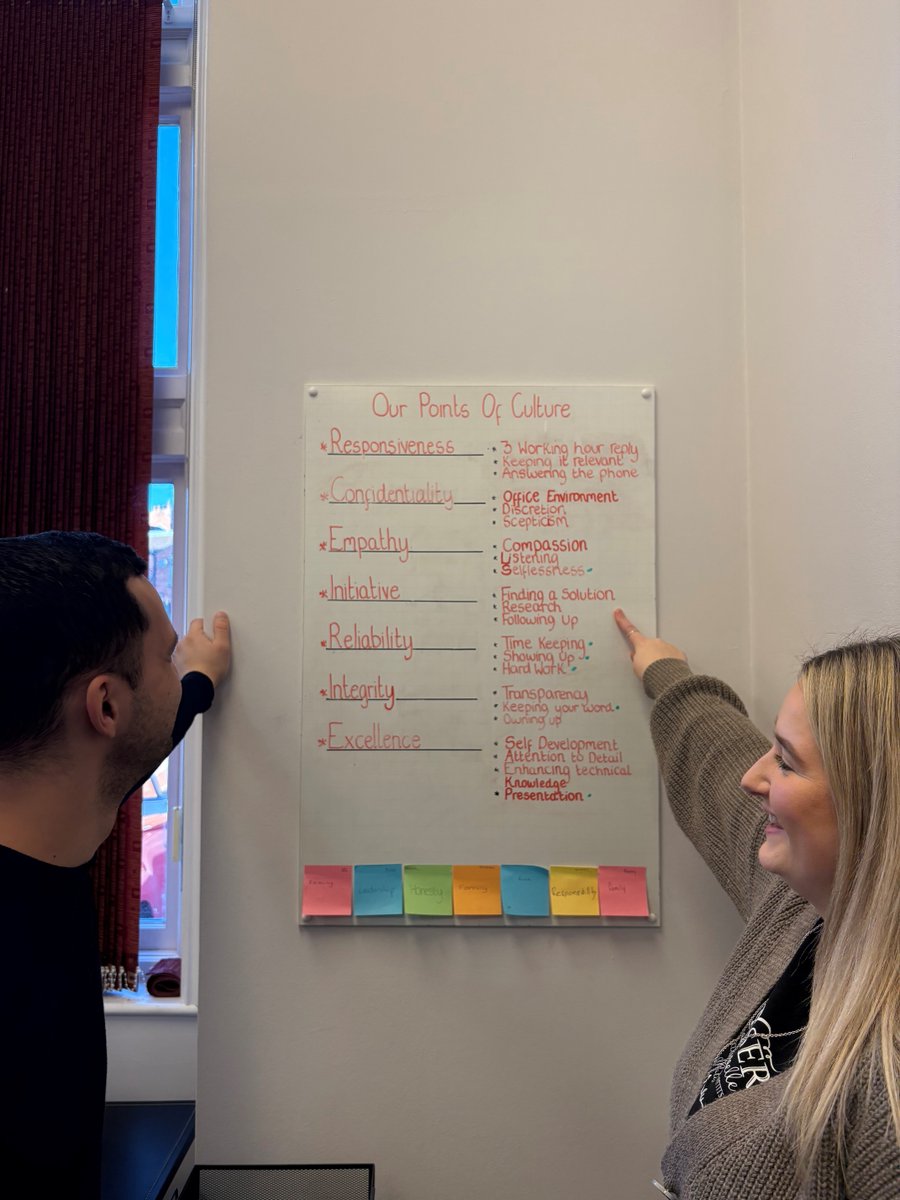 Our Points Of Culture
* Responsiveness
• 3 Working hour reply
• Keeping it relevant
• Answering the phone
* Confidentiality
• Office Environment
• Discretion
• Scepticism
* Empathy
• Compassion
• Listening
• Selflessness
* Initiative
• Finding a Solution
• Research
• Following Up
* Reliability
• Time Keeping
• Showing Up
• Hard Work
* Integrity
• Transparency
• Keeping your word
• Owning up
* Excellence
• Self Development
• Attention to Detail
• Enhancing technical
Knowledge
• Presentation
Leadership
Honesty
Responsibility
Family